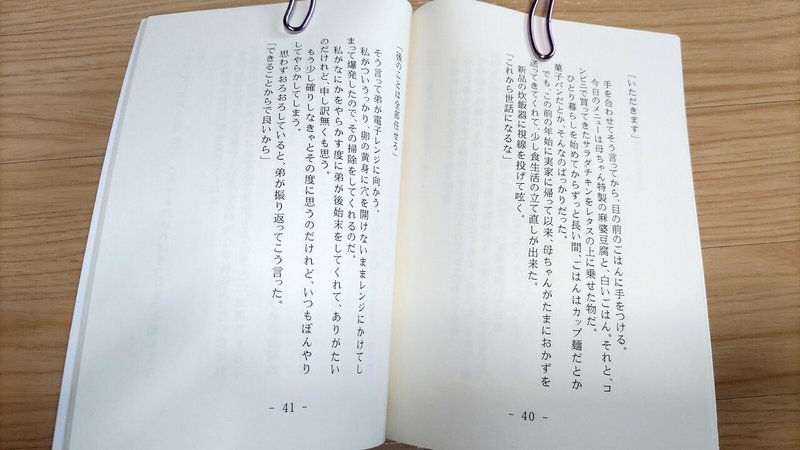 「いただきます」
手を合わせてそう言ってから、目の前のごはんに手をつける。
今日のメニューは母ちゃん特製の麻婆豆腐と、白いごはん。それと、コ
ンビニで買ってきたサラダチキンをレタスの上に乗せた物だ。
ひとり暮らしを始めてからずっと長い間、ごはんはカップ麺だとか
菓子パンだとか、そんなのばっかりだった。
でも、この前の年始に実家に帰って以来、母ちゃんがたまにおかずを
送ってきてくれて、少し食生活の立て直しが出来た。
新品の炊飯器に視線を投げて呟く。
「これから世話になるな」
- 40 -
「後のことは全部任せろ」
そう言って弟が電子レンジに向かう。
私がついうっかり、卵の黄身に穴を開けないままレンジにかけてし
まって爆発したので、その掃除をしてくれるのだ。
私がなにかをやらかす度に弟が後始末をしてくれて、ありがたい
のだけれど、申し訳無くも思う。
もう少し確りしなきゃとその度に思うのだけれど、いつもぼんやり
してやらかしてしまう。
思わずおろおろしていると、弟が振り返ってこう言った。
「できることからで良いから」
- 41 -